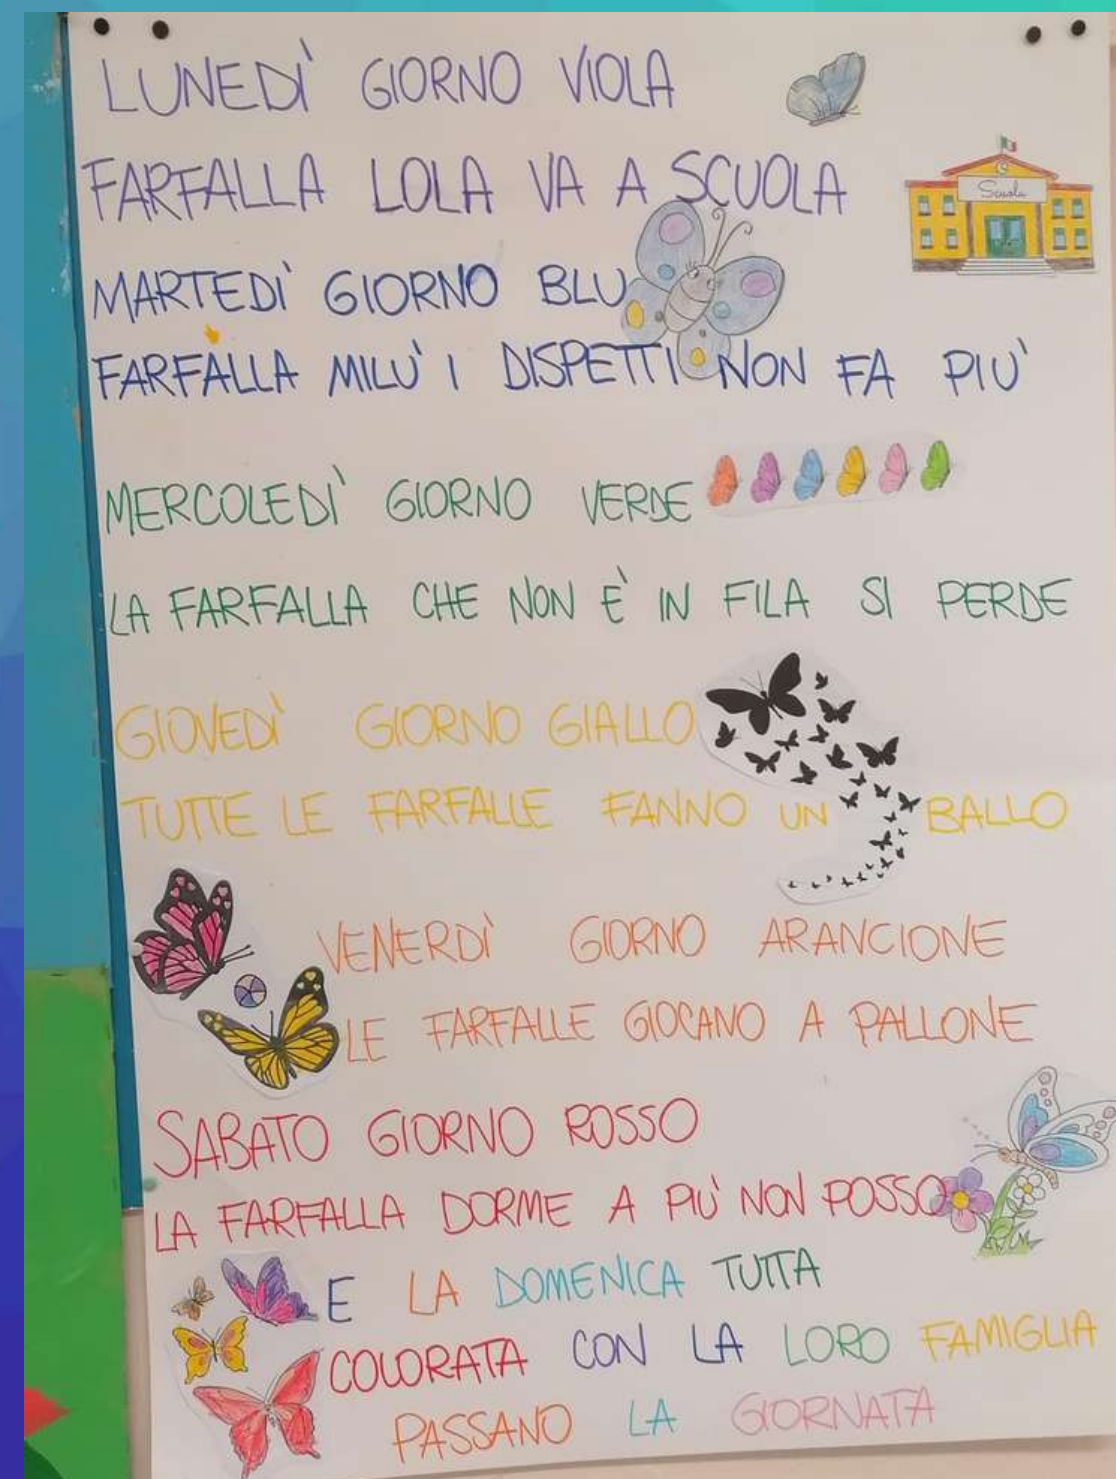 LUNEDÌ GIORNO VIOLA
FARFALLA LOLA VA A SCUOLA
Scuola
MARTEDÌ GIORNO BLU
FARFALLA MILÙ I DISPETTI NON FA PIÙ
MERCOLEDÌ GIORNO VERDE
LA FARFALLA CHE NON È IN FILA SI PERDE
GIOVEDÌ GIORNO GIALLO
TUTTE LE FARFALLE FANNO UN BALLO
VENERDÌ GIORNO ARANCIONE
LE FARFALLE GIOCANO A PALLONE
SABATO GIORNO ROSSO
LA FARFALLA DORME A PIÙ NON POSSO
E LA DOMENICA TUTTA
COLORATA CON LA LORO FAMIGLIA
PASSANO LA GIORNATA